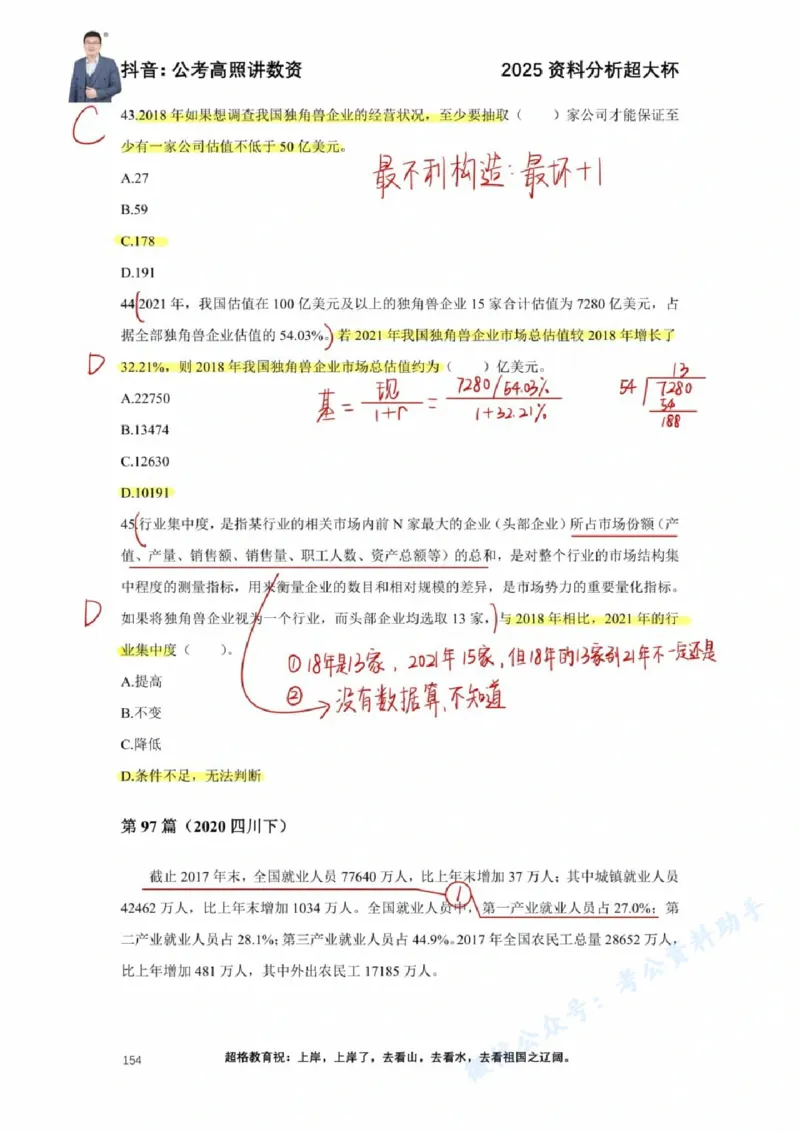 抖音：公考高照讲数资
2025 资料分析超大杯
C
43.2018 年如果想调查我国独角兽企业的经营状况，至少要抽取（ ）家公司才能保证至
少有一家公司估值不低于 50 亿美元。
最不利构造：最坏+1
A.27
B.59
C.178
D.191
44.2021 年，我国估值在 100 亿美元及以上的独角兽企业 15 家合计估值为 7280 亿美元，占
据全部独角兽企业估值的 54.03%。若 2021 年我国独角兽企业市场总估值较 2018 年增长了
D
32.21%，则 2018 年我国独角兽企业市场总估值约为（ ）亿美元。
A.22750
基 = 现/1+r = 7280/54.03% / 1+32.21%
13
54 7280
54
188
B.13474
C.12630
D.10191
45.行业集中度，是指某行业的相关市场内前 N 家最大的企业（头部企业）所占市场份额（产
值、产量、销售额、销售量、职工人数、资产总额等）的总和，是对整个行业的市场结构集
中程度的测量指标，用来衡量企业的数目和相对规模的差异，是市场势力的重要量化指标。
D
如果将独角兽企业视为一个行业，而头部企业均选取 13 家，与 2018 年相比，2021 年的行
业集中度（ ）。
①18年是13家，2021年15家，但18年的13家到21年不一定还是
A.提高
②没有数据算、不知道
B.不变
C.降低
D.条件不足，无法判断
第 97 篇（2020 四川下）
截止 2017 年末，全国就业人员 77640 万人，比上年末增加 37 万人；其中城镇就业人员
①
42462 万人，比上年末增加 1034 万人。全国就业人员中，第一产业就业人员占 27.0%；第
二产业就业人员占 28.1%；第三产业就业人员占 44.9%。2017 年全国农民工总量 28652 万人，
比上年增加 481 万人，其中外出农民工 17185 万人。
微信公众号：考公资料助手
154
超格教育祝：上岸，上岸了，去看山，去看水，去看祖国之辽阔。